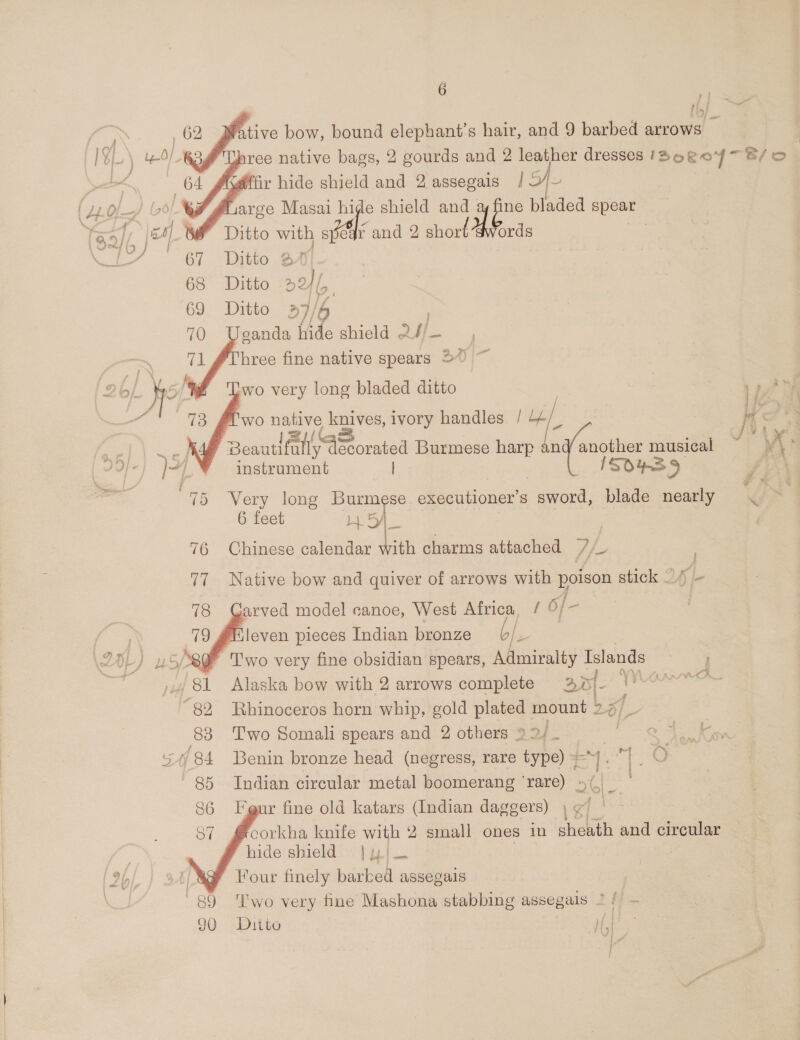 6
62 Native bow, bound elephant's hair, and 9 barbed arrows 16/-
(18/-) 40/- 63 Three native bags, 2 gourds and 2 leather dresses
64 Kaffir hide shield and 2 assegais 15/-
60/- 65 Large Masai hide shield and a fine bladed spear
(32/6) 66 Ditto with spear and 2 short swords
67 Ditto
68 Ditto 32/6
69 Ditto 37/6
70 Uganda hide shield
71 Three fine native spears
(26/- 45/ 72 Two very long bladed ditto
73 Two native knives, ivory handles 14/-
74 Beautifully decorated Burmese harp and another musical
instrument 150439
75 Very long Burmese executioner's sword, blade nearly
6 feet 45/-
76 Chinese calendar with charms attached 7/-
77 Native bow and quiver of arrows with poison stick
78 Carved model canoe, West Africa 16/-
79 Eleven pieces Indian bronze 6/-
80 Two very fine obsidian spears, Admiralty Islands
81 Alaska bow with 2 arrows complete
82 Rhinoceros horn whip, gold plated mount
83 Two Somali spears and 2 others 22/-
84 Benin bronze head (negress, rare type)
85 Indian circular metal boomerang (rare)
86 Four fine old katars (Indian daggers)
87 Goorkha knife with 2 small ones in sheath and circular
hide shield 14/-
88 Four finely barbed assegais
89 Two very fine Mashona stabbing assegais
90 Ditto 16/